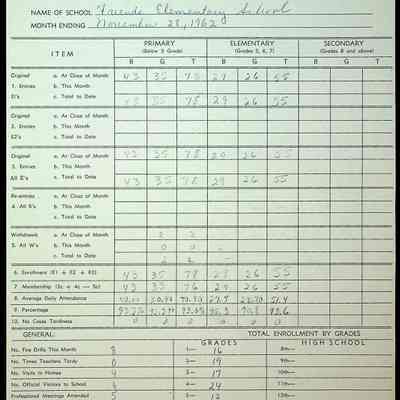 NAME OF SCHOOL Friends Elementary School
MONTH ENDING November 28, 1962
PRIMARY ELEMENTARY SECONDARY
ITEM (Below 5 Grade) (Grades 5, 6, 7) (Grades 8 and above)
B G T B G T B G T
Original a. At Close of Month 43 35 78 29 26 55
1. Entries b. This Month
E1's c. Total to Date 43 35 78 29 26 55
Original a. At Close of Month
2. Entries b. This Month
E2's c. Total to Date
Original a. At Close of Month 43 35 78 26 55
3. Entries b. This Month
All E's c. Total to Date 43 35 78 29 26 55
Re-entries a. At Close of Month
4. All R's b. This Month
c. Total to Date
Withdrawals a. At Close of Month 2 2
5. All W's b. This Month 0 0
c. Total to Date 2 2
6. Enrollment (E1 + E2 + R2) 43 35 78 29 26 55
7. Membership (3c + 4c — 5c) 43 35 78 29 26 55
8. Average Daily Attendance 51.4
9. Percentage
10. No Cases Tardiness 0 0 0 0 0 0
GENERAL: TOTAL ENROLLMENT BY GRADES
GRADES HIGH SCHOOL
No. Fire Drills This Month 1— 16 8th—
No. Times Teachers Tardy 0 2— 19 9th—
No. Visits in Homes 4 3— 17 10th—
No. Official Visitors to School 4— 24 11th—
Professional Meetings Attended 5 5— 12 12th—